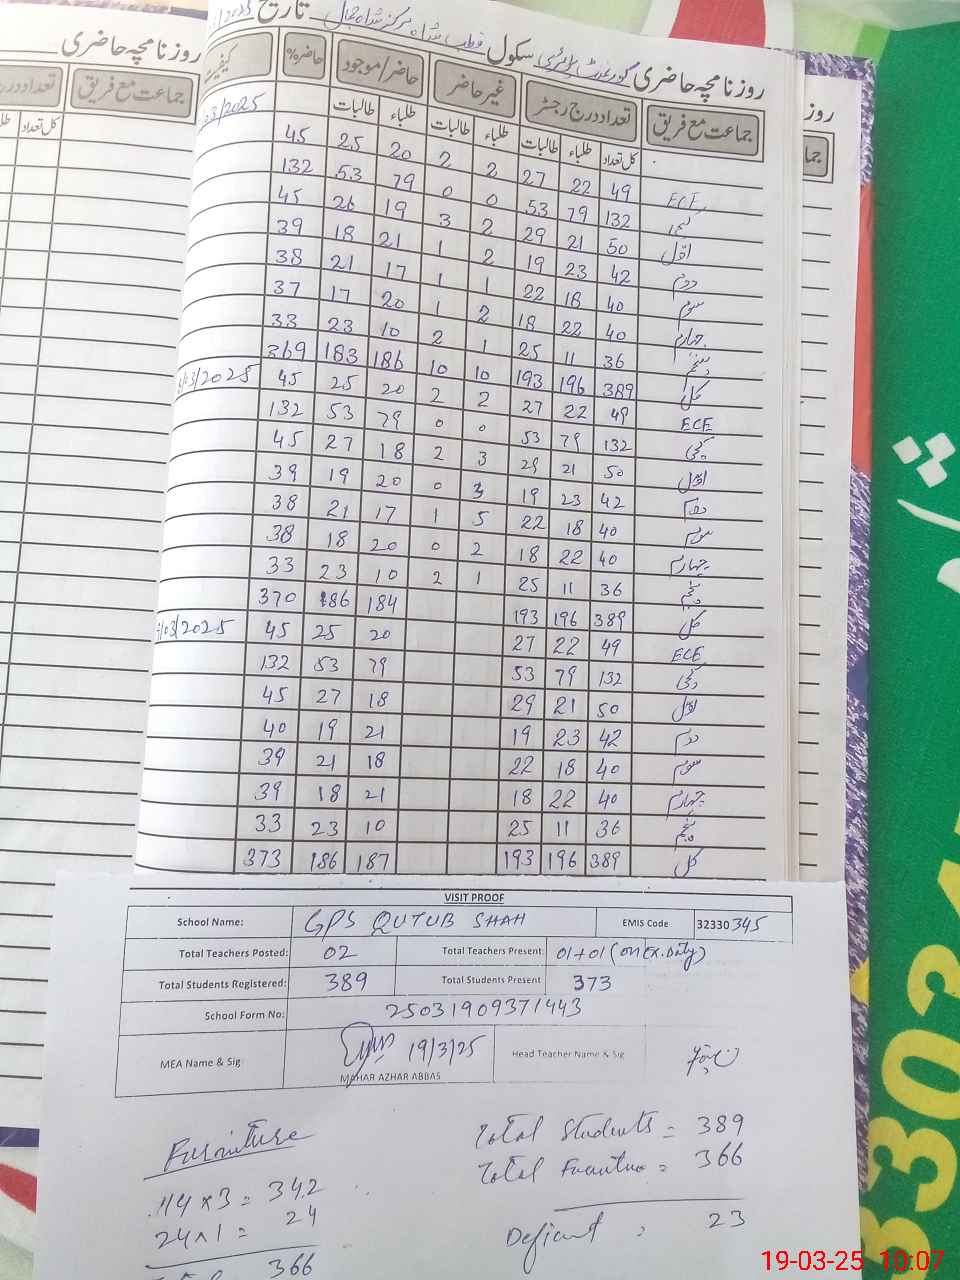 روزنامچہ حاضری گورنمنٹ پرائمری سکول قطب شاہ مرکز شاہ جمال تاریخ /2025
جماعت مع فریق تعداد درج رجسٹر غیر حاضر حاضر/موجود حاضر% کیفیت
کل تعداد طلباء طالبات طلباء طالبات طلباء طالبات
03/2025
ECE 49 22 27 2 2 20 25 45
کچی 132 79 53 0 0 79 53 132
اوّل 50 21 29 2 3 19 26 45
دوم 42 23 19 2 1 21 18 39
سوم 40 18 22 1 1 17 21 38
چہارم 40 22 18 2 1 20 17 37
پنجم 36 11 25 1 2 10 23 33
کل 389 196 193 10 10 186 183 369
/03/2025
ECE 49 22 27 2 2 20 25 45
کچی 132 79 53 0 0 79 53 132
اوّل 50 21 29 3 2 18 27 45
دوم 42 23 19 3 0 20 19 39
سوم 40 18 22 5 1 17 21 38
چہارم 40 22 18 2 0 20 18 38
پنجم 36 11 25 1 2 10 23 33
کل 389 196 193 184 186 370
/03/2025
ECE 49 22 27 20 25 45
کچی 132 79 53 79 53 132
اوّل 50 21 29 18 27 45
دوم 42 23 19 21 19 40
سوم 40 18 22 18 21 39
چہارم 40 22 18 21 18 39
پنجم 36 11 25 10 23 33
کل 389 196 193 187 186 373
روزنامچہ حاضری
جماعت مع فریق تعداد در
کل تعداد
روز
جما
VISIT PROOF
School Name: GPS QUTUB SHAH EMIS Code 32330345
Total Teachers Posted: 02 Total Teachers Present: 01+01 (on Ex. Duty)
Total Students Registered: 389 Total Students Present 373
School Form No: 25031909371443
MEA Name & Sig 19/3/25 Head Teacher Name & Sig
MAHAR AZHAR ABBAS
Furniture
114 x 3 = 342
24 x 1 = 24
366
Total Students = 389
Total Furniture = 366
Deficient = 23
3303
19-03-25 10:07